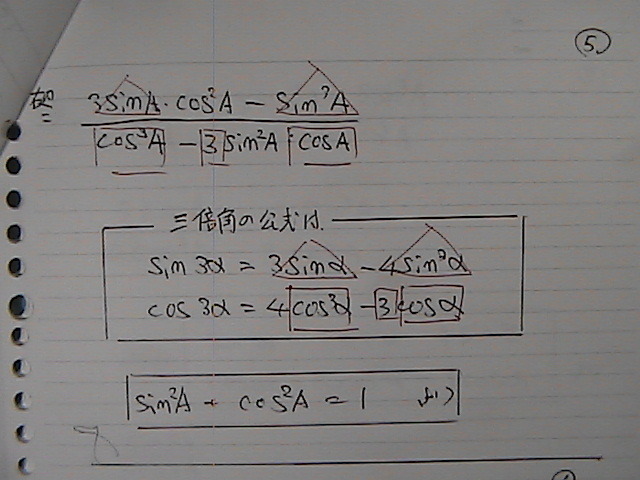 ⑤
右辺 = (3sinA・cos²A − sin³A) / (cos³A − 3sin²A・cosA)
三倍角の公式は、
sin3α = 3sinα − 4sin³α
cos3α = 4cos³α − 3cosα
sin²A + cos²A = 1 より